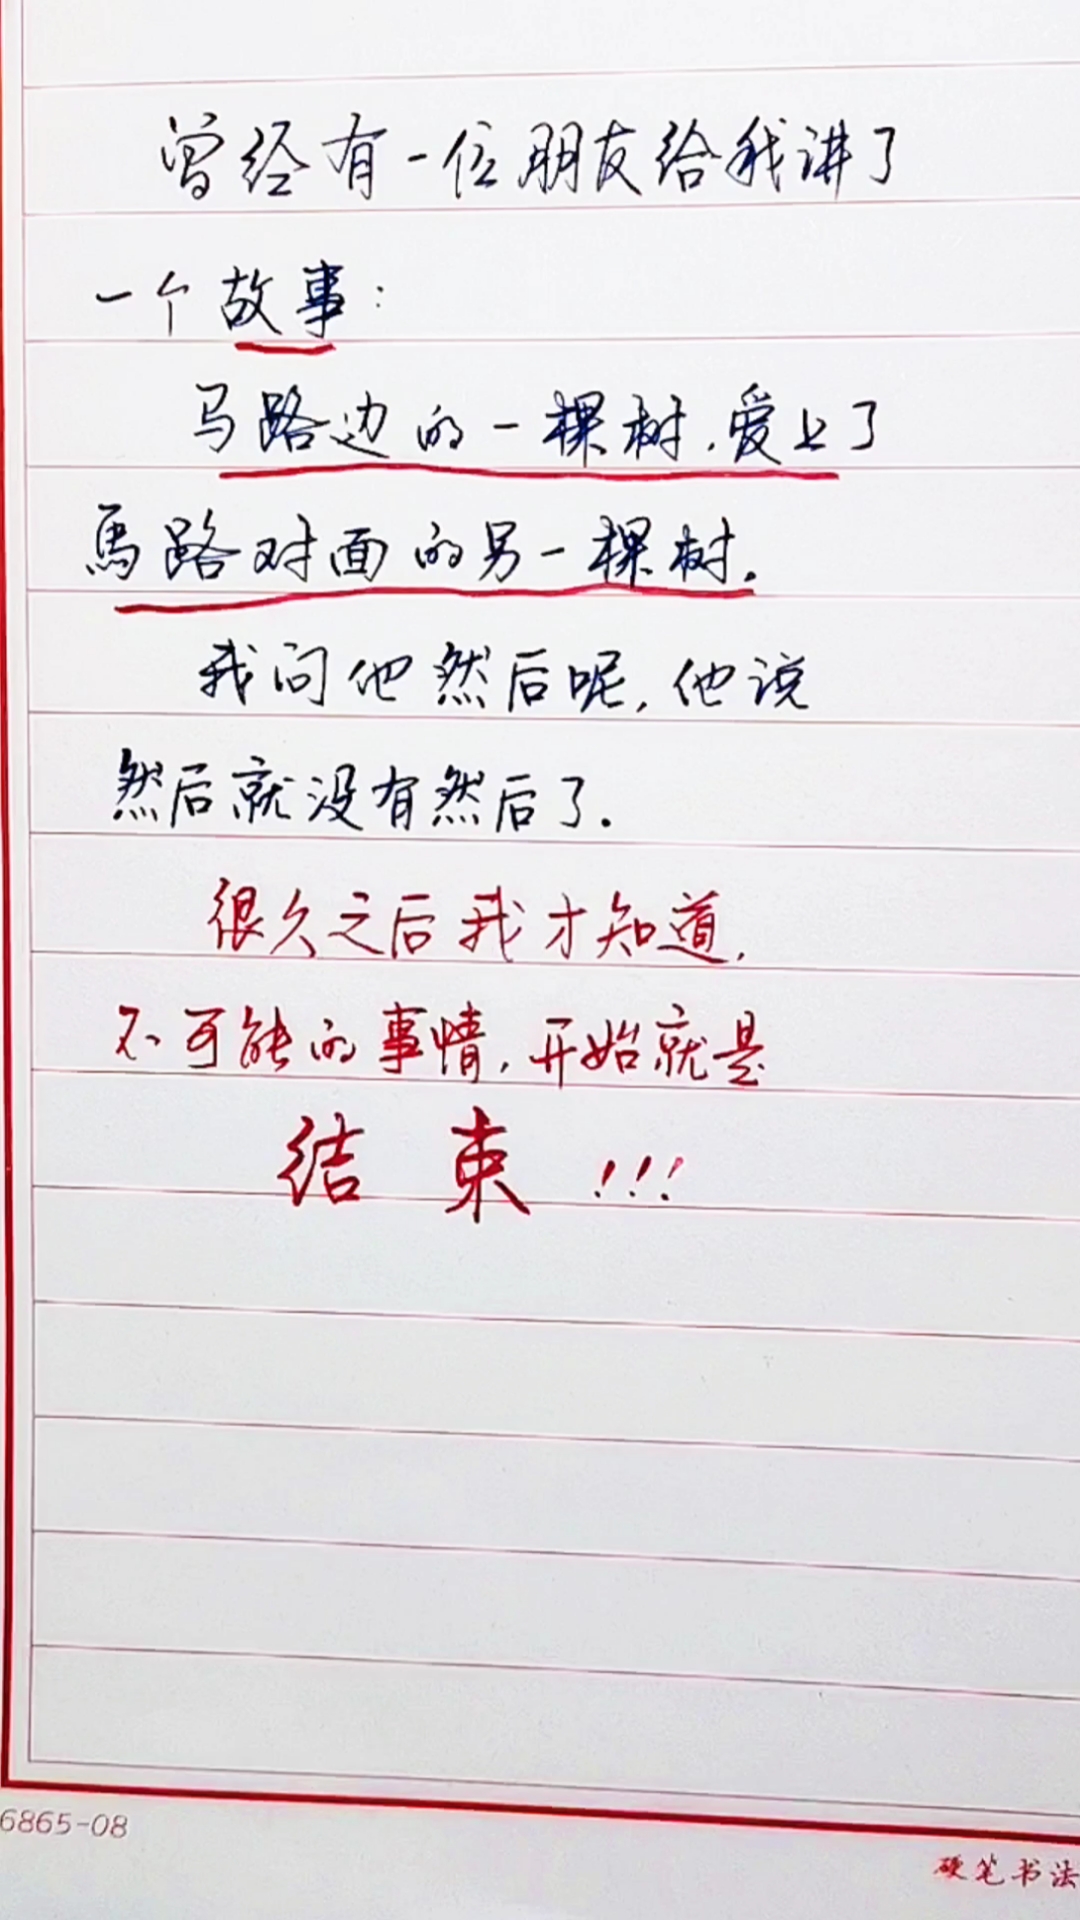 曾经有一位朋友给我讲了
一个故事:
马路边的一棵树,爱上了
馬路对面的另一棵树.
我问他然后呢,他说
然后就没有然后了.
很久之后我才知道,
不可能的事情,开始就是
结束!!!
6865-08
硬笔书法